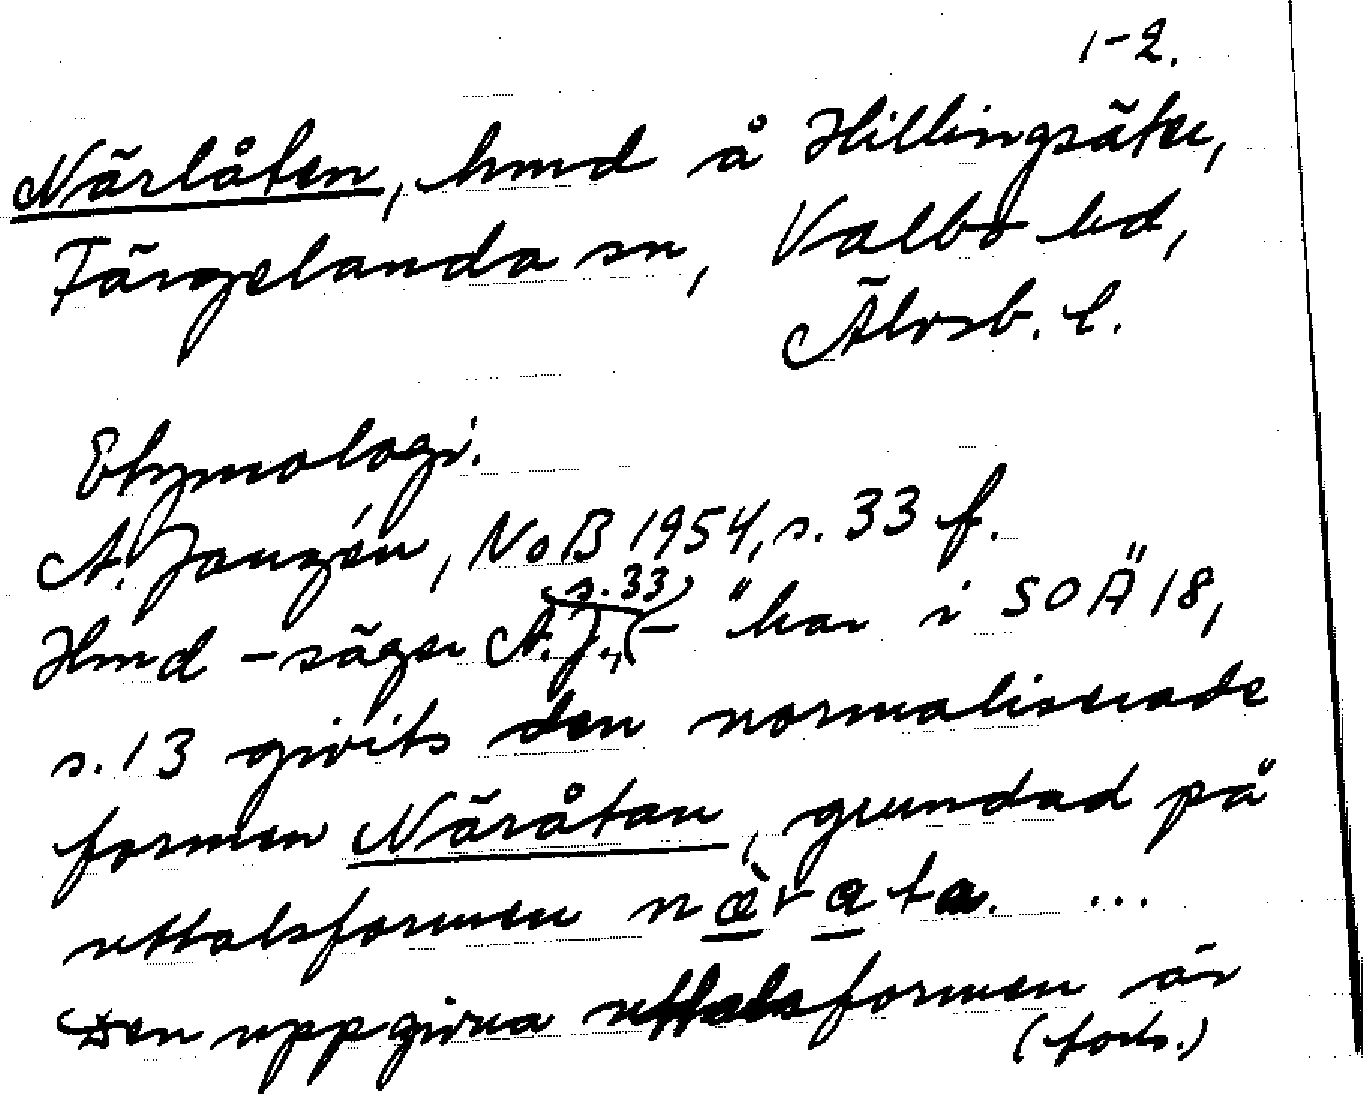 1-2.
Närlåten, hmd å Hillingsäter,
Färgelanda sn, Valbo hd,
Älvsb. l.
Etymologi.
A. Janzén, NoB 1954, s. 33 f.
Hmd – säger A. J., (s. 33) – "har i SOÄ 18,
s. 13 givits den normaliserade
formen Näråtan, grundad på
uttalsformen næ̀rata. ...
Den uppgivna uttalsformen är
(forts.)